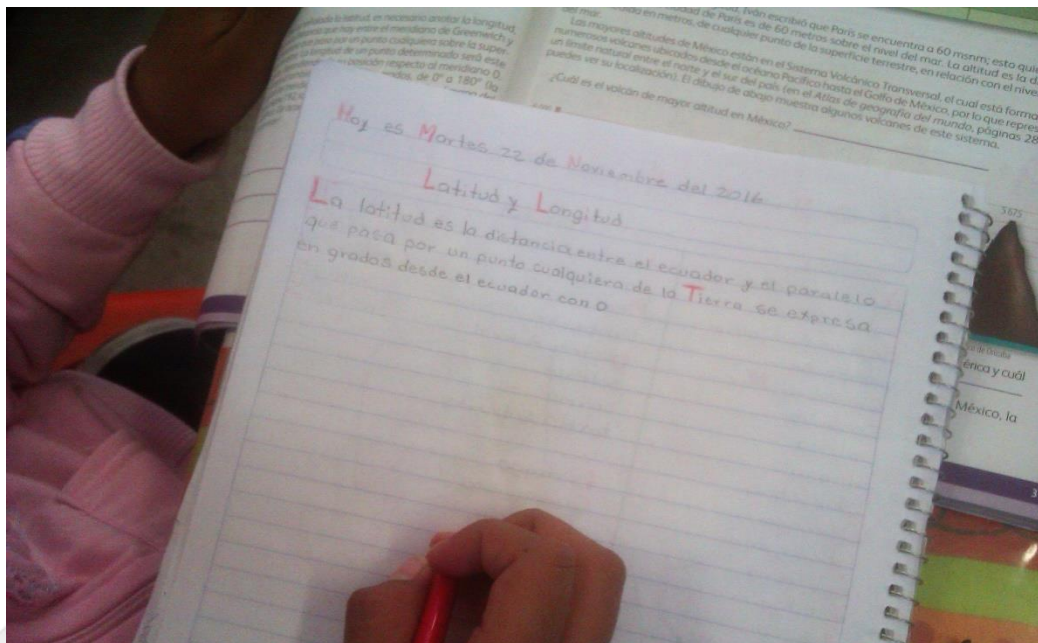 es necesario anotar la longitud,
que hay entre el meridiano de Greenwich y
pasa por un punto cualquiera sobre la super
longitud de un punto determinado será este
posición respecto al meridiano 0.
de 0° a 180°
Iván escribió que París se encuentra a 60 msnm; esto qui
dad de París es de 60 metros sobre el nivel del mar. La altitud es la d
en metros, de cualquier punto de la superficie terrestre, en relación con el nive
del mar.
Las mayores altitudes de México están en el Sistema Volcánico Transversal, el cual está forma
numerosos volcanes ubicados desde el océano Pacífico hasta el Golfo de México, por lo que repres
un límite natural entre el norte y el sur del país (en el Atlas de geografía del mundo, páginas 28
puedes ver su localización). El dibujo de abajo muestra algunos volcanes de este sistema.
¿Cuál es el volcán de mayor altitud en México?
Hoy es Martes 22 de Noviembre del 2016
Latitud y Longitud
La latitud es la distancia entre el ecuador y el paralelo
que pasa por un punto cualquiera de la Tierra se expresa
en grados desde el ecuador con 0
5 675
érica y cuál
México, la
3